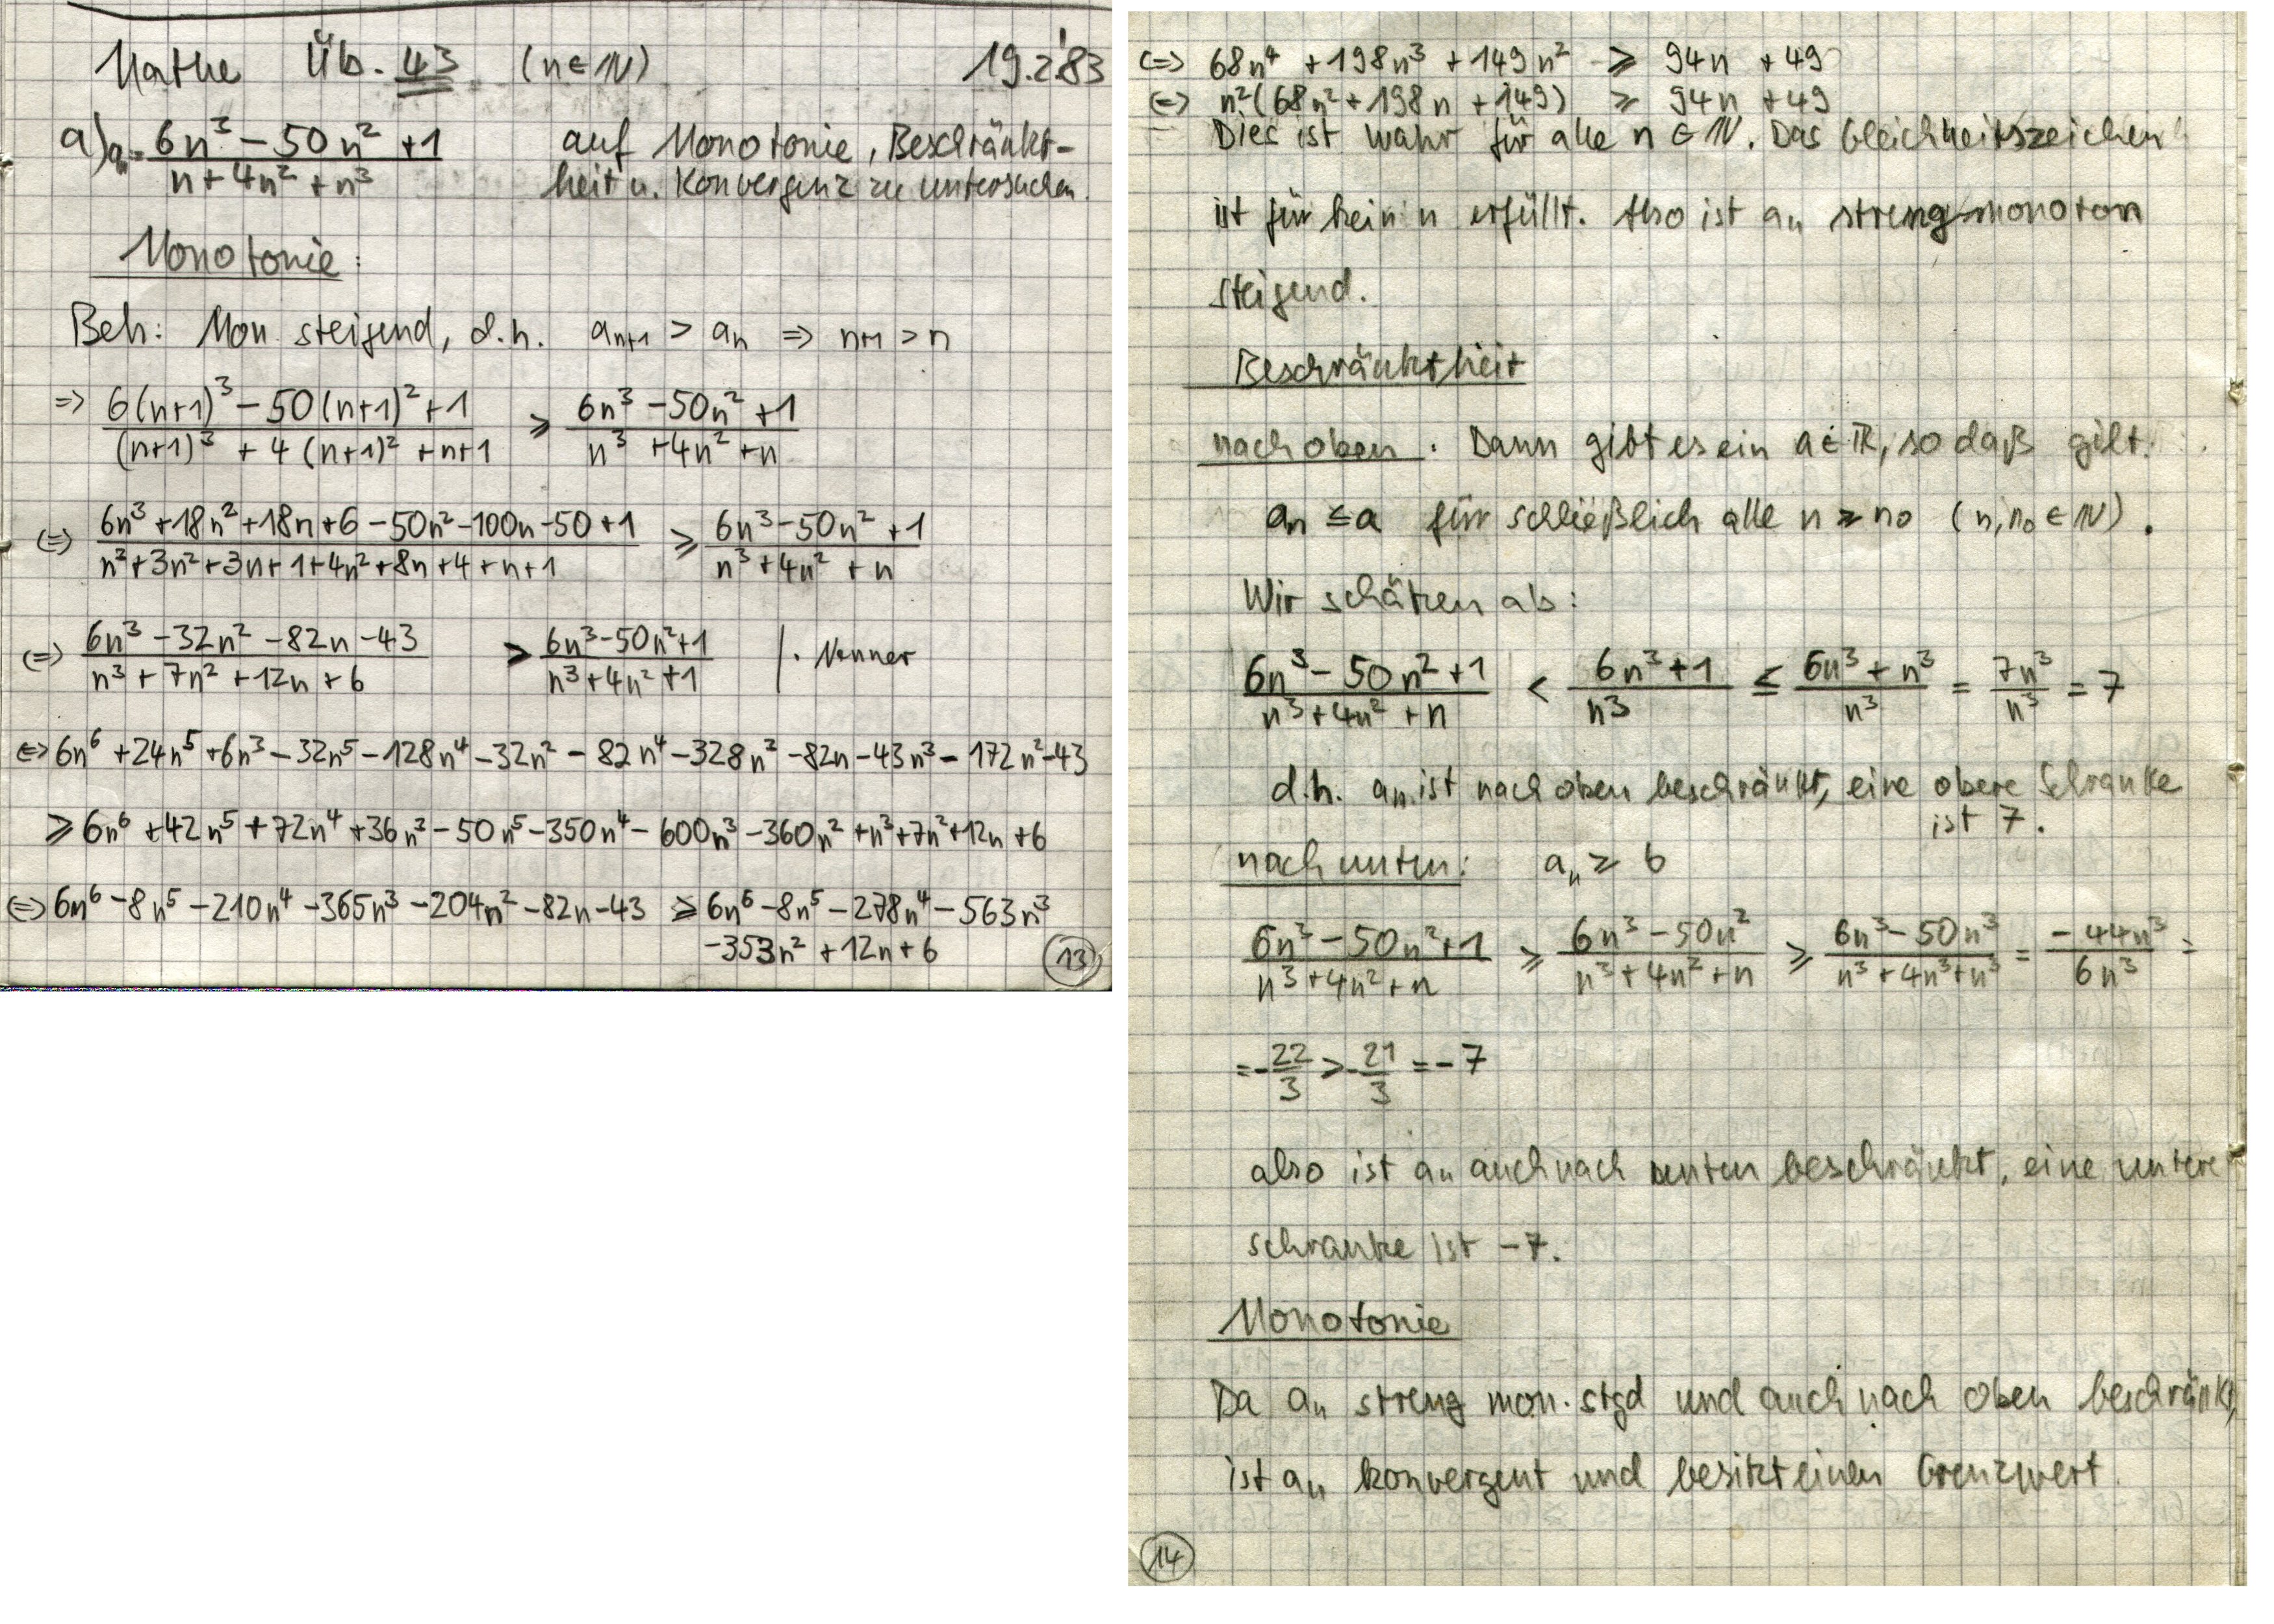 Mathe Üb. 43 (n∈ℕ) 19.2.83
a) aₙ = (6n³ − 50n² + 1)/(n + 4n² + n³) auf Monotonie, Beschränkt-
heit u. Konvergenz zu untersuchen.
Monotonie:
Beh: Mon. steigend, d.h. aₙ₊₁ > aₙ ⇒ n+1 > n
⇒ (6(n+1)³ − 50(n+1)² + 1)/((n+1)³ + 4(n+1)² + n+1) ≥ (6n³ − 50n² + 1)/(n³ + 4n² + n)
⇔ (6n³ + 18n² + 18n + 6 − 50n² − 100n − 50 + 1)/(n³ + 3n² + 3n + 1 + 4n² + 8n + 4 + n + 1) ≥ (6n³ − 50n² + 1)/(n³ + 4n² + n)
⇔ (6n³ − 32n² − 82n − 43)/(n³ + 7n² + 12n + 6) ≥ (6n³ − 50n² + 1)/(n³ + 4n² + 1) | · Nenner
⇔ 6n⁶ + 24n⁵ + 6n³ − 32n⁵ − 128n⁴ − 32n² − 82n⁴ − 328n³ − 82n − 43n³ − 172n² − 43
≥ 6n⁶ + 42n⁵ + 72n⁴ + 36n³ − 50n⁵ − 350n⁴ − 600n³ − 360n² + n³ + 7n² + 12n + 6
⇔ 6n⁶ − 8n⁵ − 210n⁴ − 365n³ − 204n² − 82n − 43 ≥ 6n⁶ − 8n⁵ − 278n⁴ − 563n³
− 353n² + 12n + 6
13
⇔ 68n⁴ + 198n³ + 149n² ≥ 94n + 49
⇔ n²(68n² + 198n + 149) ≥ 94n + 49
Dies ist wahr für alle n ∈ ℕ. Das Gleichheitszeichen
ist für kein n erfüllt. Also ist aₙ streng monoton
steigend.
Beschränktheit
nach oben. Dann gibt es ein a ∈ ℝ, so daß gilt:
aₙ ≤ a für schließlich alle n ≥ n₀ (n, n₀ ∈ ℕ).
Wir schätzen ab:
(6n³ − 50n² + 1)/(n³ + 4n² + n) < (6n³ + 1)/n³ ≤ (6n³ + n³)/n³ = 7n³/n³ = 7
d.h. aₙ ist nach oben beschränkt, eine obere Schranke
ist 7.
nach unten: aₙ ≥ b
(6n³ − 50n² + 1)/(n³ + 4n² + n) ≥ (6n³ − 50n²)/(n³ + 4n² + n) ≥ (6n³ − 50n³)/(n³ + 4n³ + n³) = −44n³/6n³ =
= −22/3 > −21/3 = −7
also ist aₙ auch nach unten beschränkt, eine untere
Schranke ist −7.
Monotonie
Da aₙ streng mon. stgd und auch nach oben beschränkt,
ist aₙ konvergent und besitzt einen Grenzwert.
14